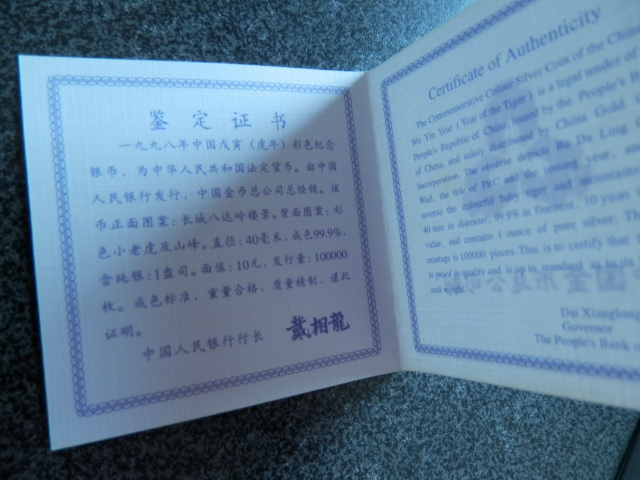 鉴定证书
一九九八年中国戊寅（虎年）彩色纪念
银币，为中华人民共和国法定货币。由中国
人民银行发行，中国金币总公司总经销。该
币正面图案：长城八达岭楼景。背面图案：彩
色小老虎及山峰。直径：40毫米，成色99.9%，
含纯银：1盎司。面值：10元，发行量：100000
枚。成色标准，重量合格，质量精制，谨此
证明。
中国人民银行行长 戴相龍
Certificate of Authenticity
The Commemorative Colour Silver Coin of the Chin
Wu Yin Year (Year of the Tiger) is a legal tender of
People's Republic of China issued by the People's B
of China, and solely distributed by China Gold C
Incorporation. The obverse depicts Ba Da Ling G
Wall, the title of PRC and the coining year,
reverse the colourful baby tiger and mountain
40 mm in diameter, 99.9% in fineness, 10 yuan
value, and contains 1 ounce of pure silver. Th
mintage is 100000 pieces. This is to certify that
is proof in quality and is up to standard as to its
and weight.
Dai Xianglong
Governor
The People's Bank o